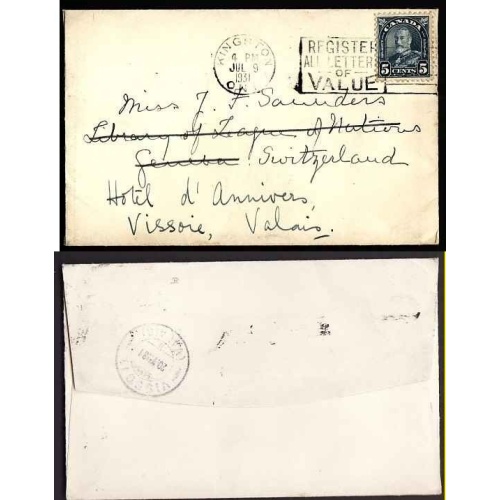 KINGSTON
4 PM
JUL 9
1931
ONT
REGISTER
ALL LETTERS
OF
VALUE
CANADA
5 CENTS 5
Miss J. F. Saunders
Library of League of Nations
Geneva Switzerland
Hotel d'Annivers,
Vissoie, Valais.
VISSOIE